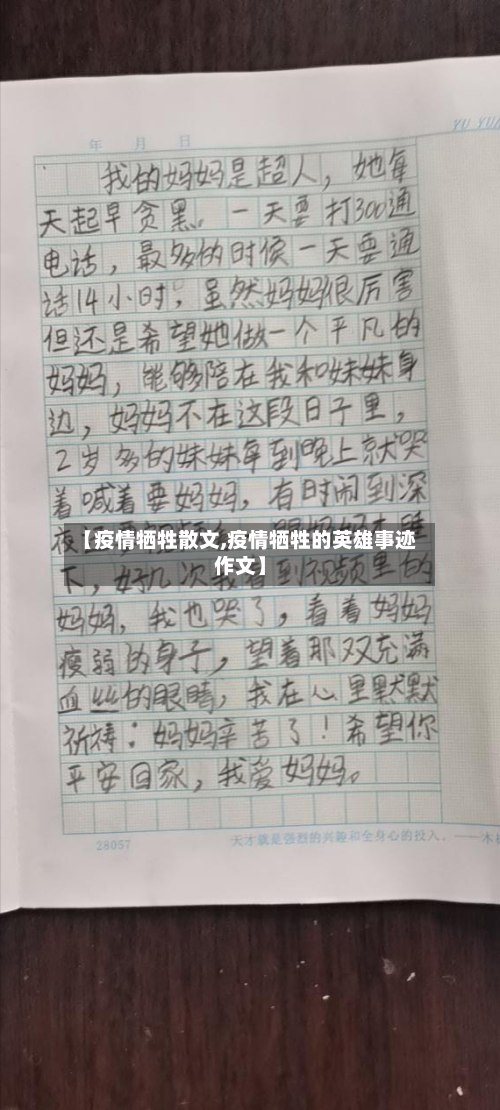 YU YU
年 月 日
我的妈妈是超人，她每
天起早贪黑。一天要打300通
电话，最多的时候一天要通
话14小时，虽然妈妈很厉害
但还是希望她做一个平凡的
妈妈，能够陪在我和妹妹身
边，妈妈不在这段日子里，
2岁多的妹妹每到晚上就哭
着喊着要妈妈，有时闹到深
夜
【疫情牺牲散文,疫情牺牲的英雄事迹
作文】
下，好几次我看到视频里的
妈妈，我也哭了，看着妈妈
瘦弱的身子，望着那双充满
血丝的眼睛，我在心里默默
祈祷：妈妈辛苦了！希望你
平安回家，我爱妈妈。
28057 天才就是强烈的兴趣和全身心的投入。——木村